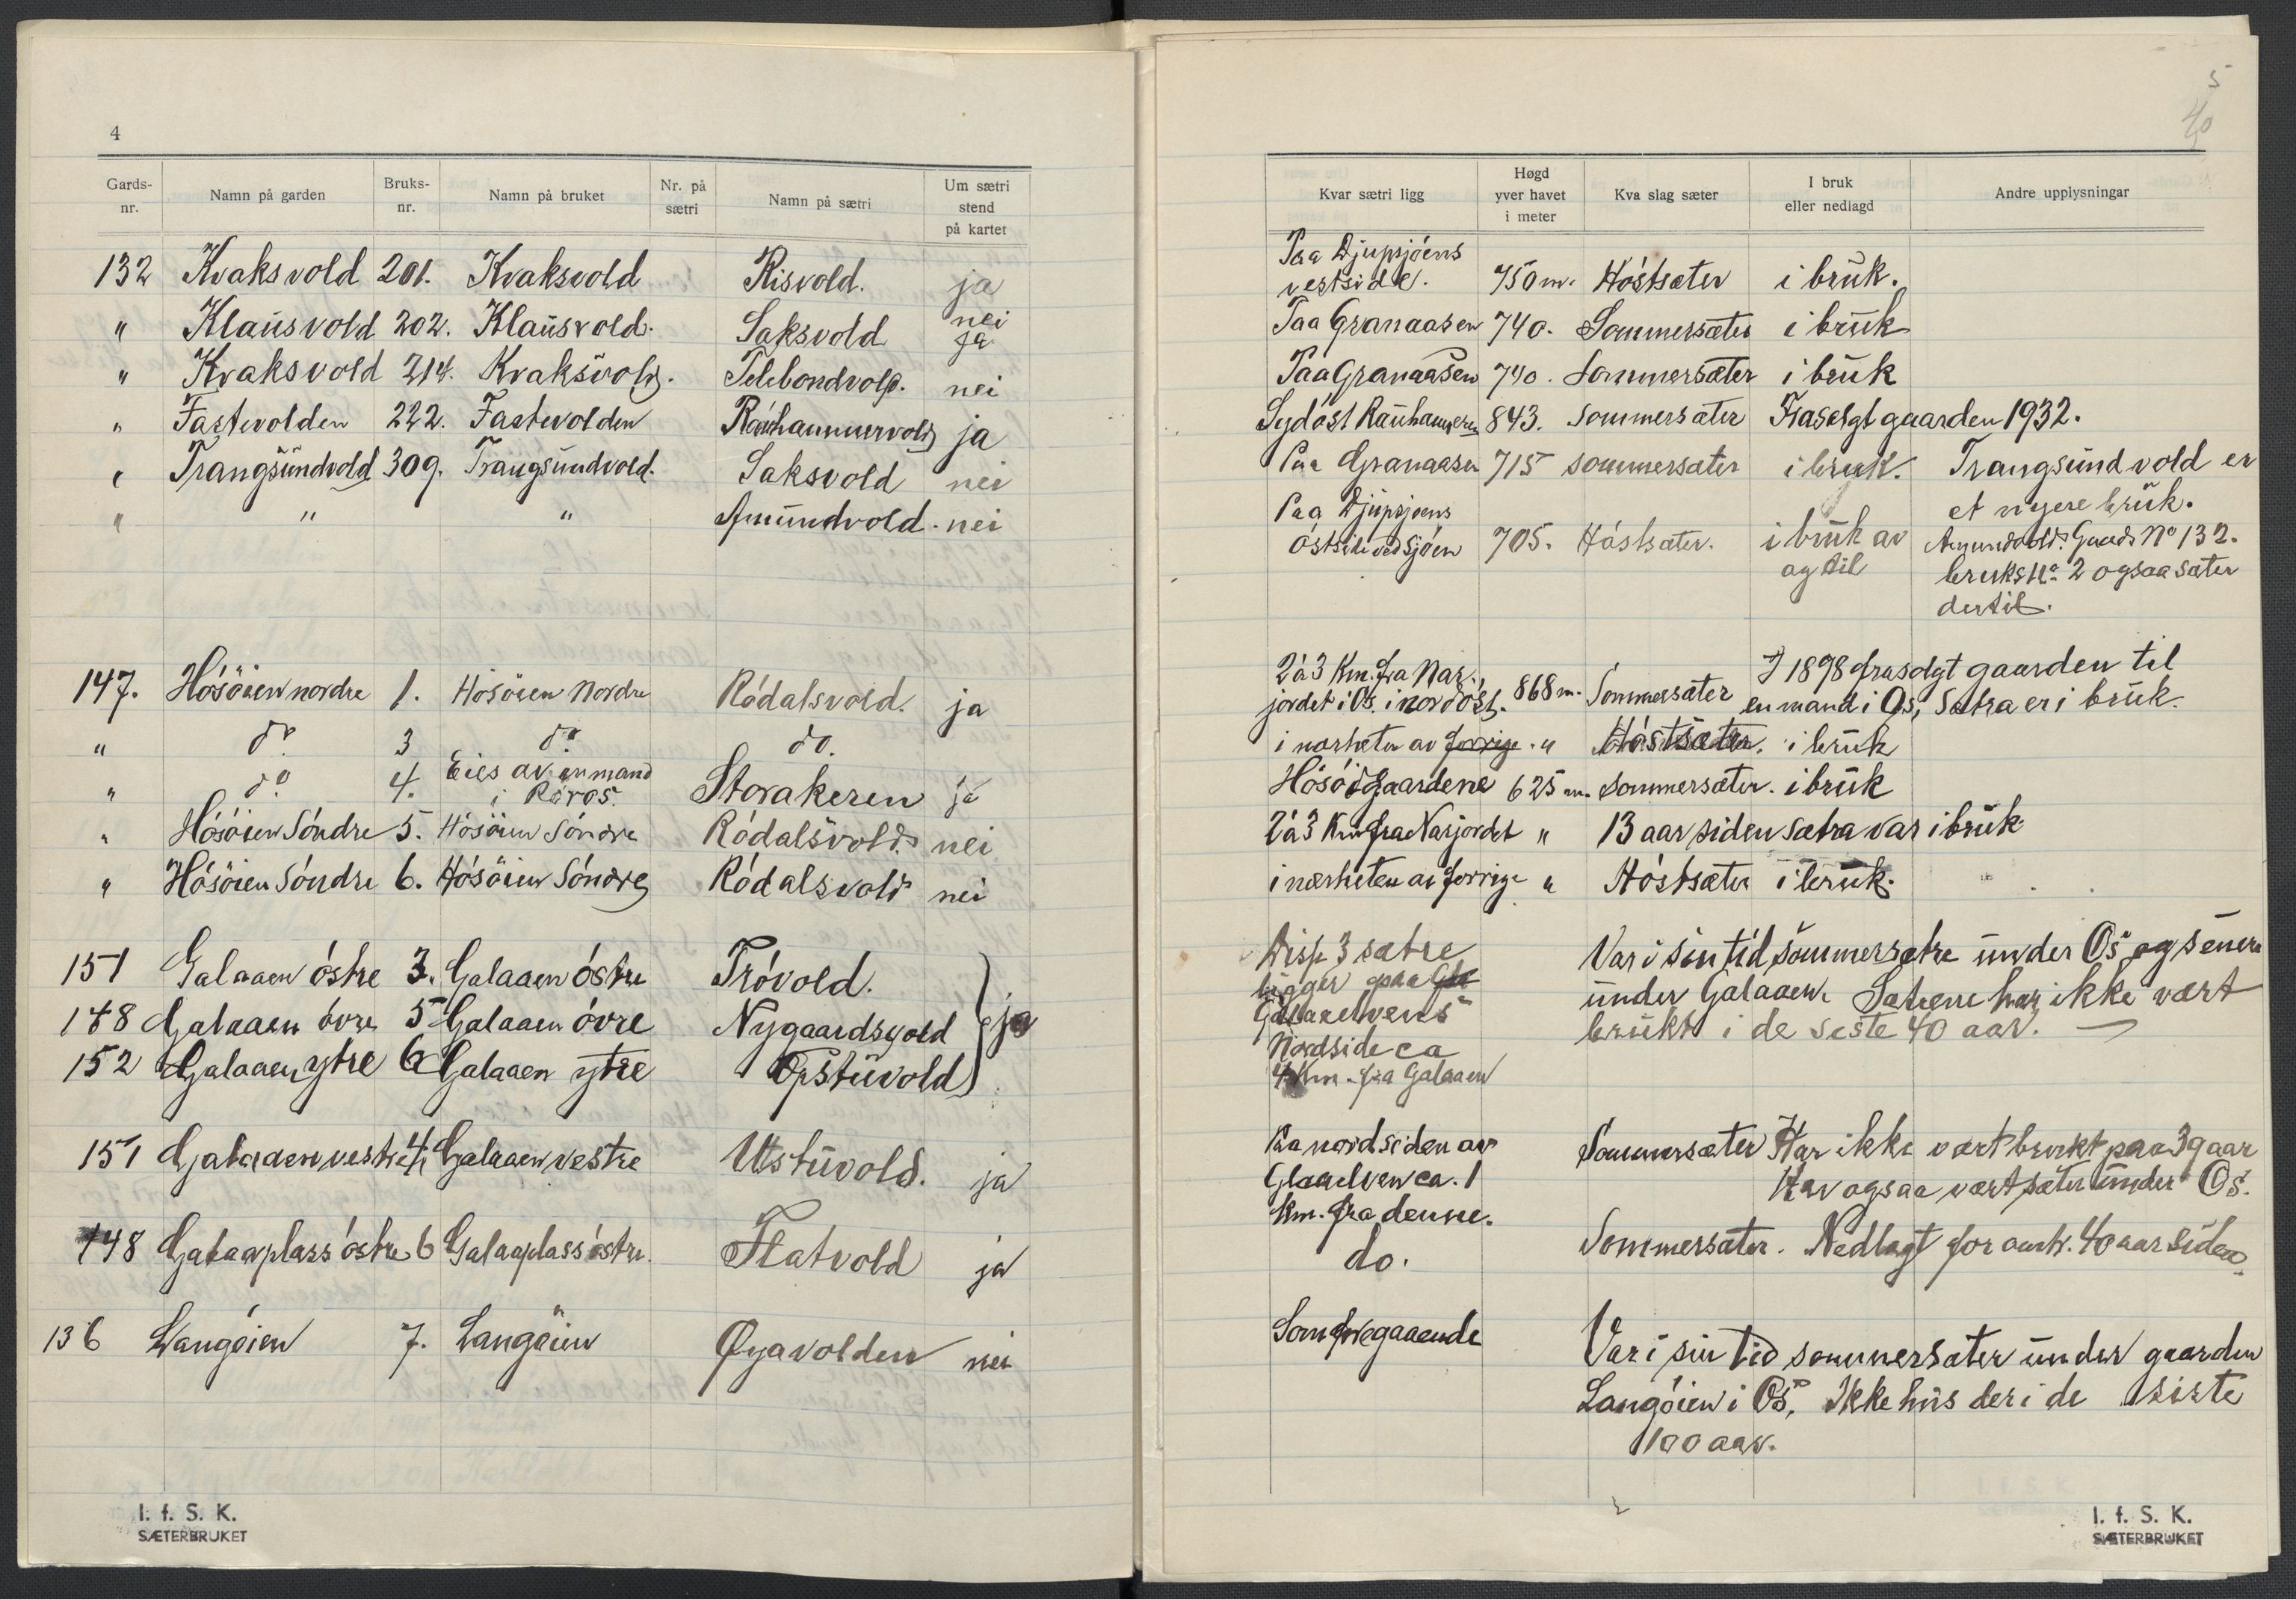 4
Gards-nr. Namn på garden Bruks-nr. Namn på bruket Nr. på sætri Namn på sætri Um sætri stend på kartet
132 Kvaksvold 201. Kvaksvold Risvold. ja
" Klausvold 202. Klausvold. Saksvold nei ja
" Kvaksvold 214. Kvaksvold. Telebondvold. nei
" Fastevolden 222. Fastevolden Rauhammervold ja
" Trangsundvold 309. Trangsundvold. Saksvold nei
" " " Amundvold. nei
147. Hósöien nordre 1. Hósöien Nordre Ródalsvold. ja
" do 3 do do.
" do 4. Eies av en mand i Róros. Storakeren ja
" Hósöien Sóndre 5. Hósöien Sóndre Ródalsvold. nei
" Hósöien Sóndre 6. Hósöien Sóndre Ródalsvold nei
151 Galaaen óstre 3. Galaaen óstre Tróvold.
148 Galaaen óvre 5 Galaaen óvre Nygaardsvold } ja
152 Galaaen ytre 6 Galaaen ytre Opstuvold
151 Galaaen vestre 4. Galaaen vestre Utstuvold. ja
148 Galaaplass óstre 6 Galaaplass óstre. Flatvold ja
136 Langóien 7. Langóien Øyavolden nei
I. f. S. K.
SÆTERBRUKET
5
40
Kvar sætri ligg Høgd yver havet i meter Kva slag sæter I bruk eller nedlagd Andre upplysningar
Paa Djupsjóens
vestside. 750 m. Hóstsæter i bruk.
Paa Granaasen 740. Sommersæter i bruk
Paa Granaasen 740. Sommersæter i bruk
Sydóst Rauhammeren 843. Sommersæter Frasolgt gaarden 1932.
Paa Granaasen 715 sommersæter i bruk. Trangsundvold er
et nyere bruk.
Paa Djupsjoens
óstside ved Sjóen 705. Hóstsæter. i bruk av og til
Amundvold. Gaards No 132.
bruks No 2 ogsaa sæter
dertil.
2 à 3 Km. fra Nar-
jordet i Os. i nordóst. 868 m. Sommersæter I 1898 frasolgt gaarden til
en mand i Os, Sætra er i bruk.
i nærheten av forrige. " Hóstsæter. i bruk
Hósöigaardene 625 m. sommersæter. i bruk
2 à 3 Km fra Narjordet " 13 aar siden sætra var i bruk
i nærheten av forrige " Hóstsæter i bruk.
Disse 3 sætre
ligger paa
Galaaelvens
Nordside ca
4 Km. fra Galaaen
Var i sin tid sommersætre under Os og senere
under Galaaen. Sætrene har ikke vært
brukt i de seste 40 aar.
Paa nordsiden av
Glaaelven ca. 1
km. fra denne.
Sommersæter Har ikke vært brukt paa 39 aar
Har ogsaa vært sæter under Os.
do. Sommersæter. Nedlagt for omtr. 40 aar siden
Som foregaaende
Var i sin tid sommersæter under gaarden
Langóien i Os, Ikke hus der i de siste
100 aar.
I. f. S. K.
SÆTERBRUKET